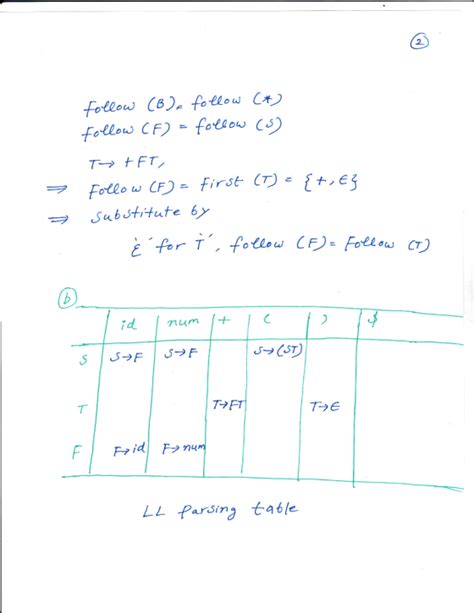 2
Follow (B) = follow (*)
Follow (F) = follow (S)
T→ +FT,
⇒ Follow (F) = First (T) = {+, ε}
⇒ substitute by
'ε' for 'T', follow (F) = Follow (T)
b
id num + ( ) $
S S→F S→F S→(ST)
T T→FT T→ε
F F→id F→num
LL parsing table